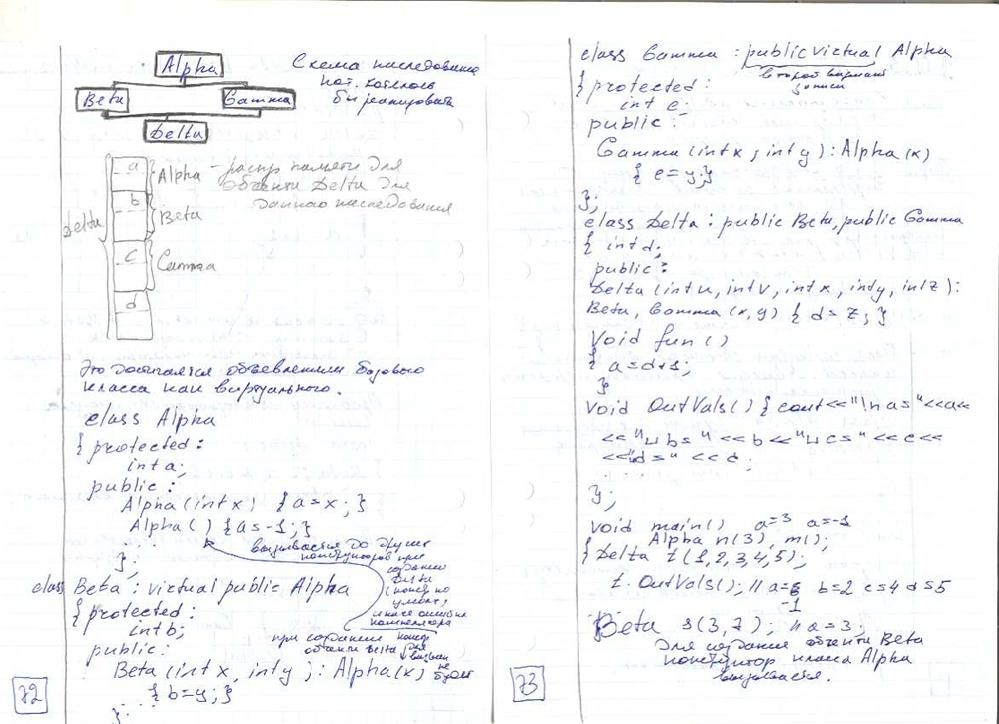 Alpha
Beta
Gamma
Delta
Схема наследования
кот. хотелось
бы реализовать
a
b
c
d
Delta
Alpha
Beta
Gamma
- распр памяти для
объекта Delta для
данного наследования
Это достигается объявлением базового
класса как виртуального.
class Alpha
{ protected:
int a;
public:
Alpha (int x) {a=x;}
Alpha() {a=-1;}
вызывается до других
конструкторов при
создании
Delta
(констр по
умолч,
иначе ошибка
компилятора
};
class Beta : virtual public Alpha
{ protected:
int b;
public:
Beta (int x, int y) : Alpha(x)
{ b=y; }
};
при создании
объекта Delta
не
будет
72
class Gamma : public virtual Alpha
второй вариант
записи
{ protected:
int c;
public:
Gamma (int x, int y) : Alpha (x)
{ c=y;}
};
class Delta : public Beta, public Gamma
{ int d;
public:
Delta (int u, int v, int x, int y, int z):
Beta, Gamma (x,y) { d=z; }
void fun()
{ a=d+1;
}
void OutVals() { cout<<"\n a="<<a<<
<<"⊔b="<<b<<"⊔c="<<c<<
<<"d="<<d;
};
void main() a=3 a=-1
Alpha n(3) m();
{ Delta t(1,2,3,4,5);
t.OutVals(); // b=2 c=4 d=5
-1
Beta s(3,7); // a=3;
Для создания объекта Beta
конструктор класса Alpha
вызывается.
73